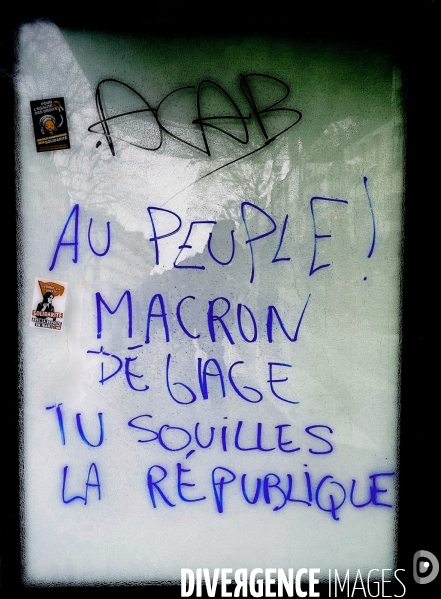 ACAB
AU PEUPLE !
MACRON
DÉGAGE
TU SOUILLES
LA RÉPUBLIQUE
SOLIDARITÉ
DIVERGENCE IMAGES